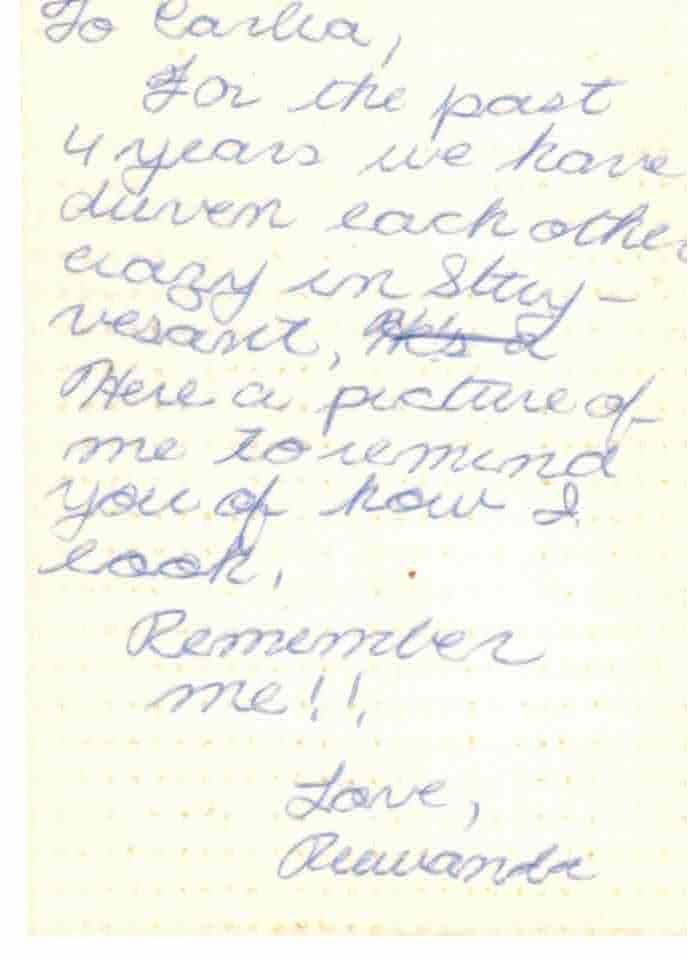 To Carla,
For the past
4 years we have
driven each other
crazy in Stuy-
vesant,
Here a picture of
me to remind
you of how I
look.
Remember
me!!
Love,